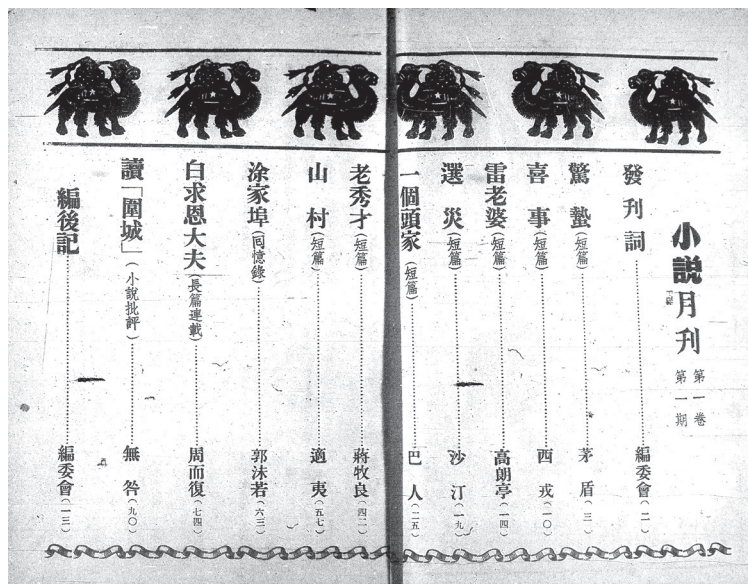 小說月刊
第一卷
第一期
發刊詞……編委會(二)
驚蟄(短篇)……茅盾(三)
喜事(短篇)……西戎(一〇)
雷老婆(短篇)……高朗亭(一四)
選災(短篇)……沙汀(一九)
一個頭家(短篇)……巴人(二五)
老秀才(短篇)……蔣牧良(四二)
山村(短篇)……適夷(五七)
涂家埠(回憶錄)……郭沫若(六三)
白求恩大夫(長篇連載)……周而復(七四)
讀「圍城」(小說批評)……無咎(九〇)
編後記……編委會(一三)